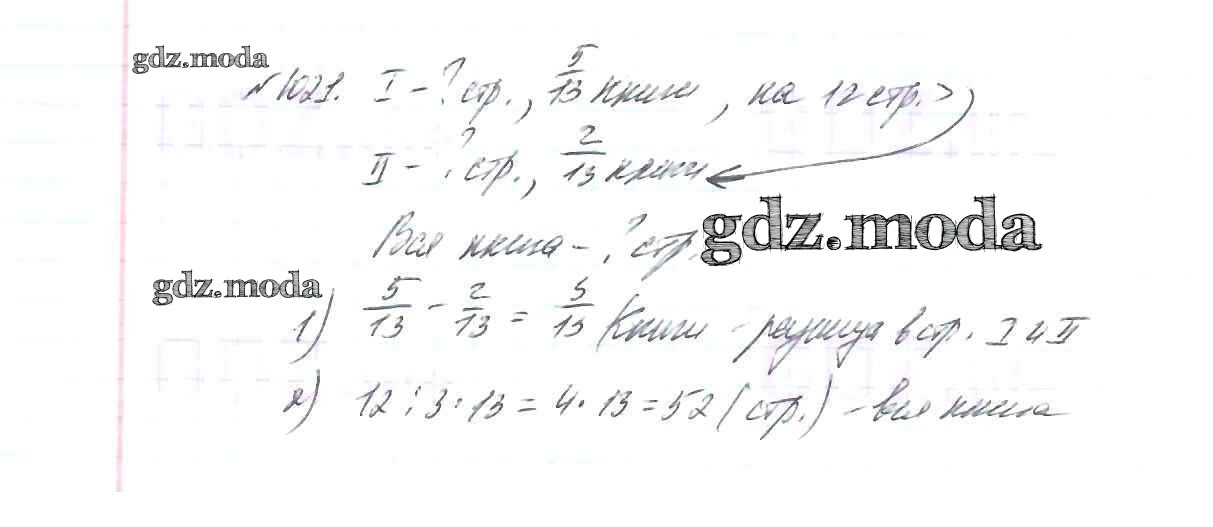 gdz.moda
№1021. I - ? стр., 5/13 книги, на 12 стр. >
II - ? стр., 2/13 книги
Вся книга - ? стр.
gdz.moda
gdz.moda
1) 5/13 - 2/13 = 3/13 (книги - разница в стр. I и II
2) 12 : 3 · 13 = 4 · 13 = 52 (стр.) - вся книга